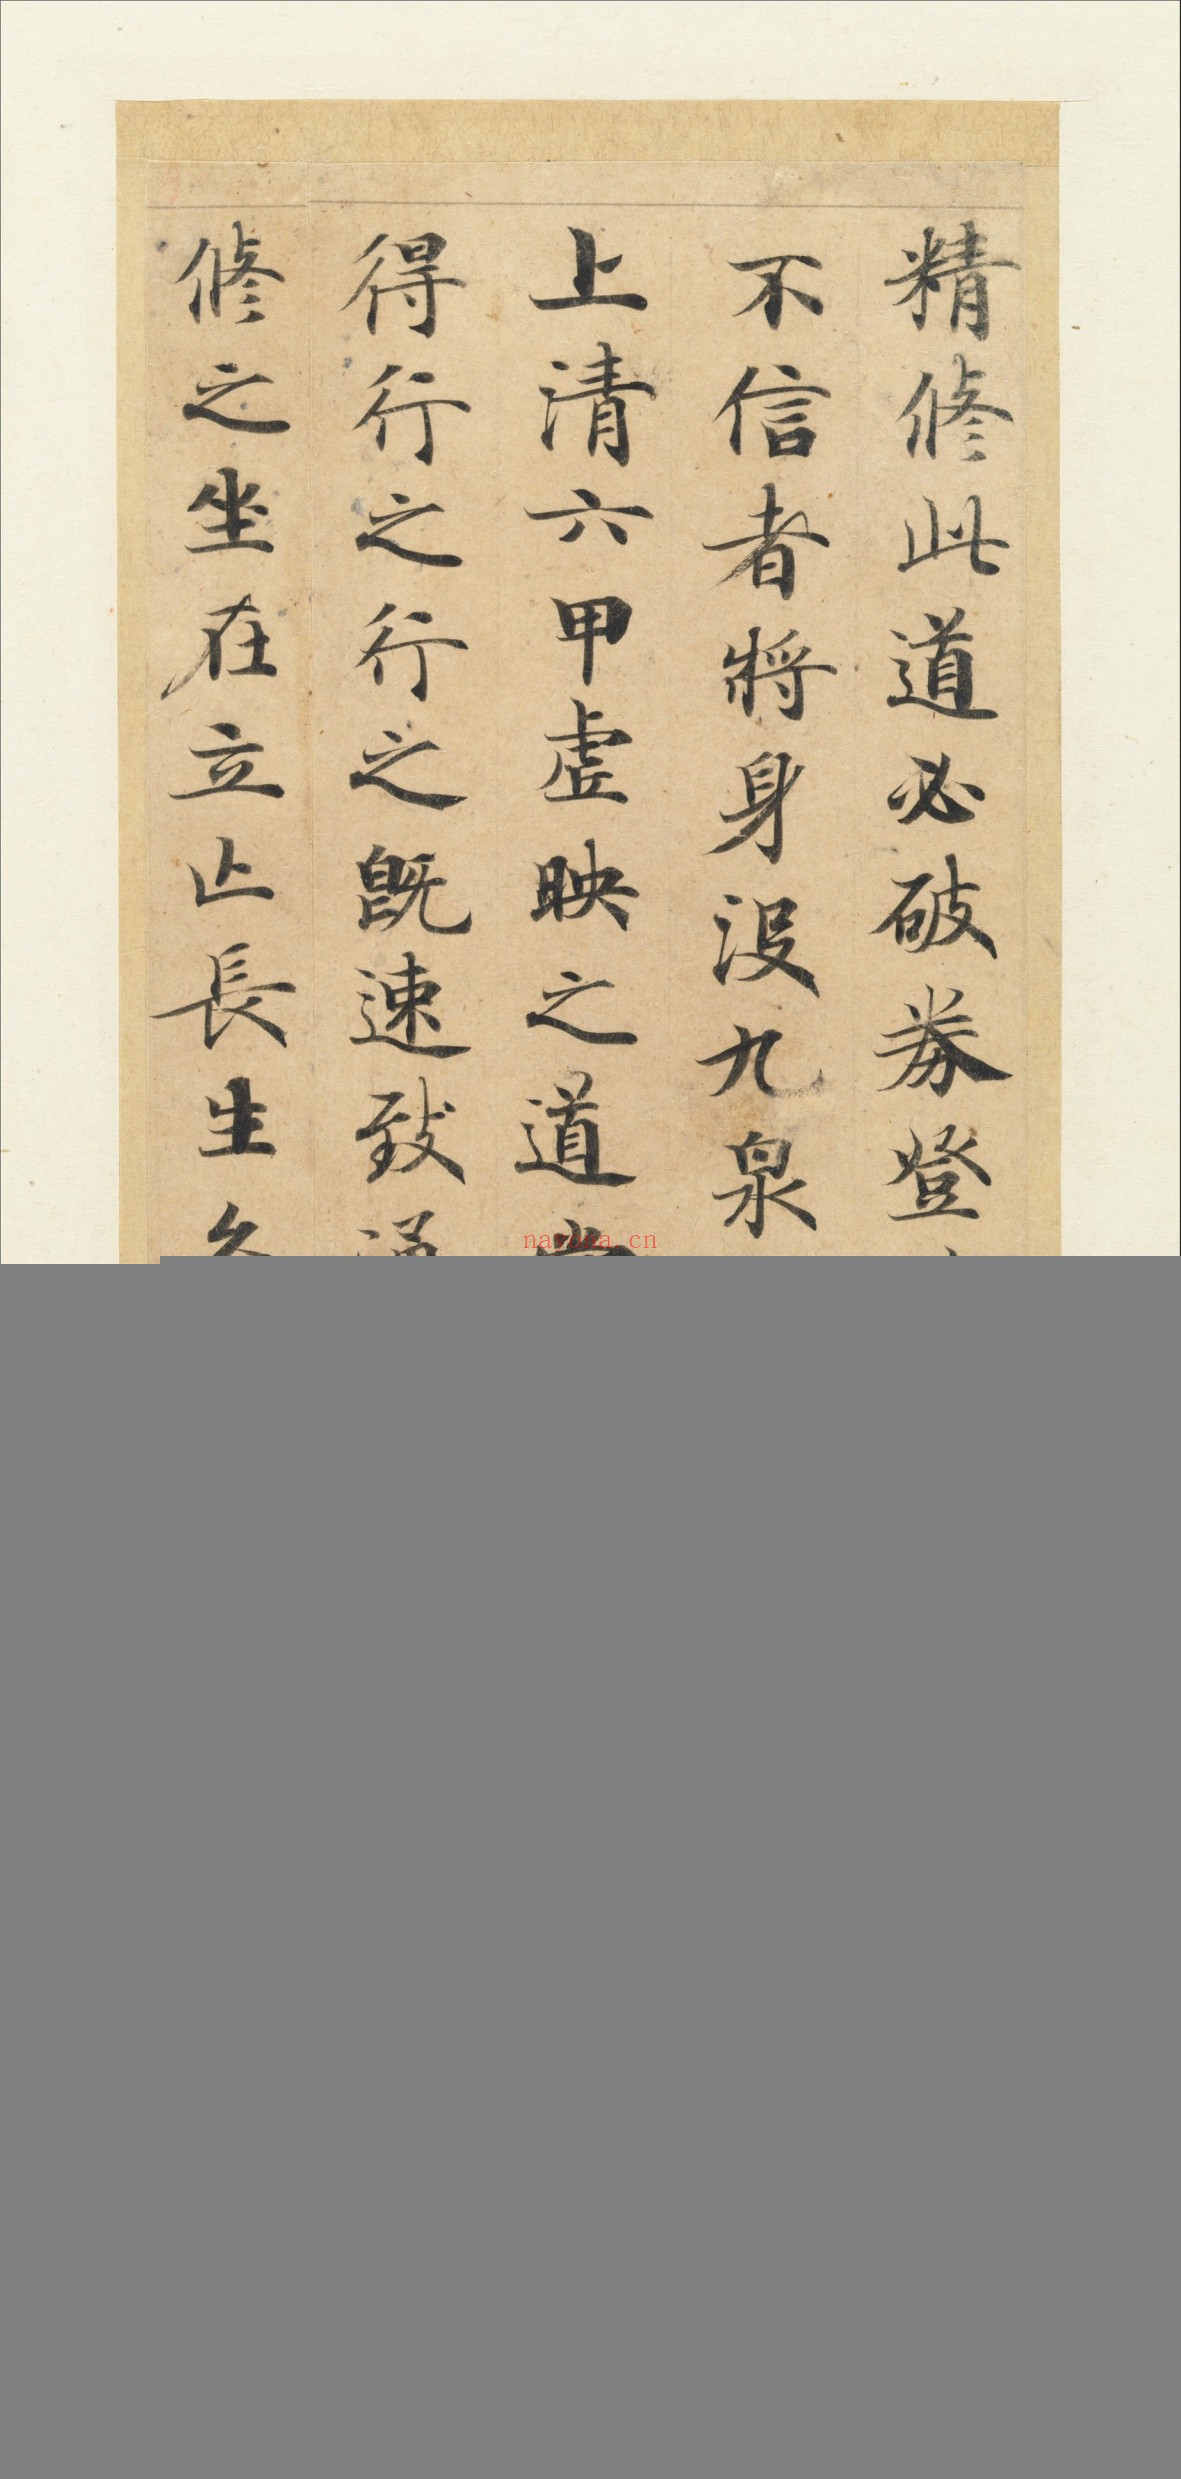 精脩此道必破券登
不信者將身没九泉
上清六甲虛映之道
得行之行之既速致通
脩之坐在立亡長生久
nasihua.cn